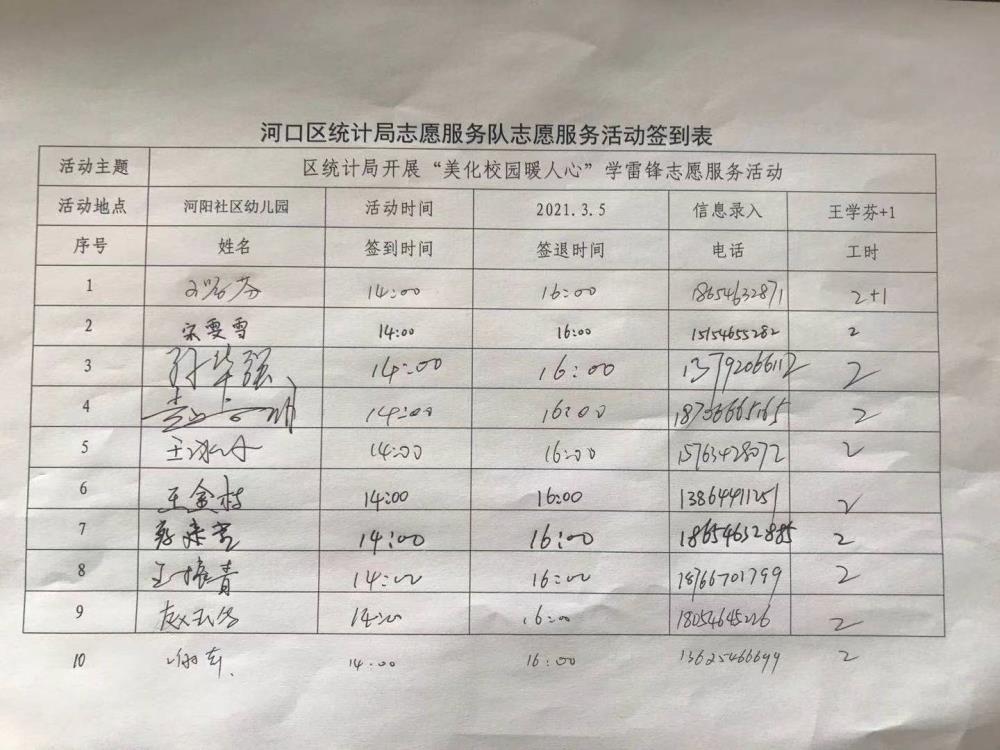 河口区统计局志愿服务队志愿服务活动签到表
活动主题 区统计局开展“美化校园暖人心”学雷锋志愿服务活动
活动地点 河阳社区幼儿园 活动时间 2021.3.5 信息录入 王学芬+1
序号 姓名 签到时间 签退时间 电话 工时
1 14:00 16:00 18654632871 2+1
2 宋雯雪 14:00 16:00 15154655282 2
3 孙华强 14:00 16:00 13792066112 2
4 14:00 16:00 2
5 王冰 14:00 16:00 15763428072 2
6 王金枝 14:00 16:00 13864491251 2
7 14:00 16:00 18654632885 2
8 王振青 14:00 16:00 18766701799 2
9 赵 14:00 16:00 18054645226 2
10 14:00 16:00 13625466699 2